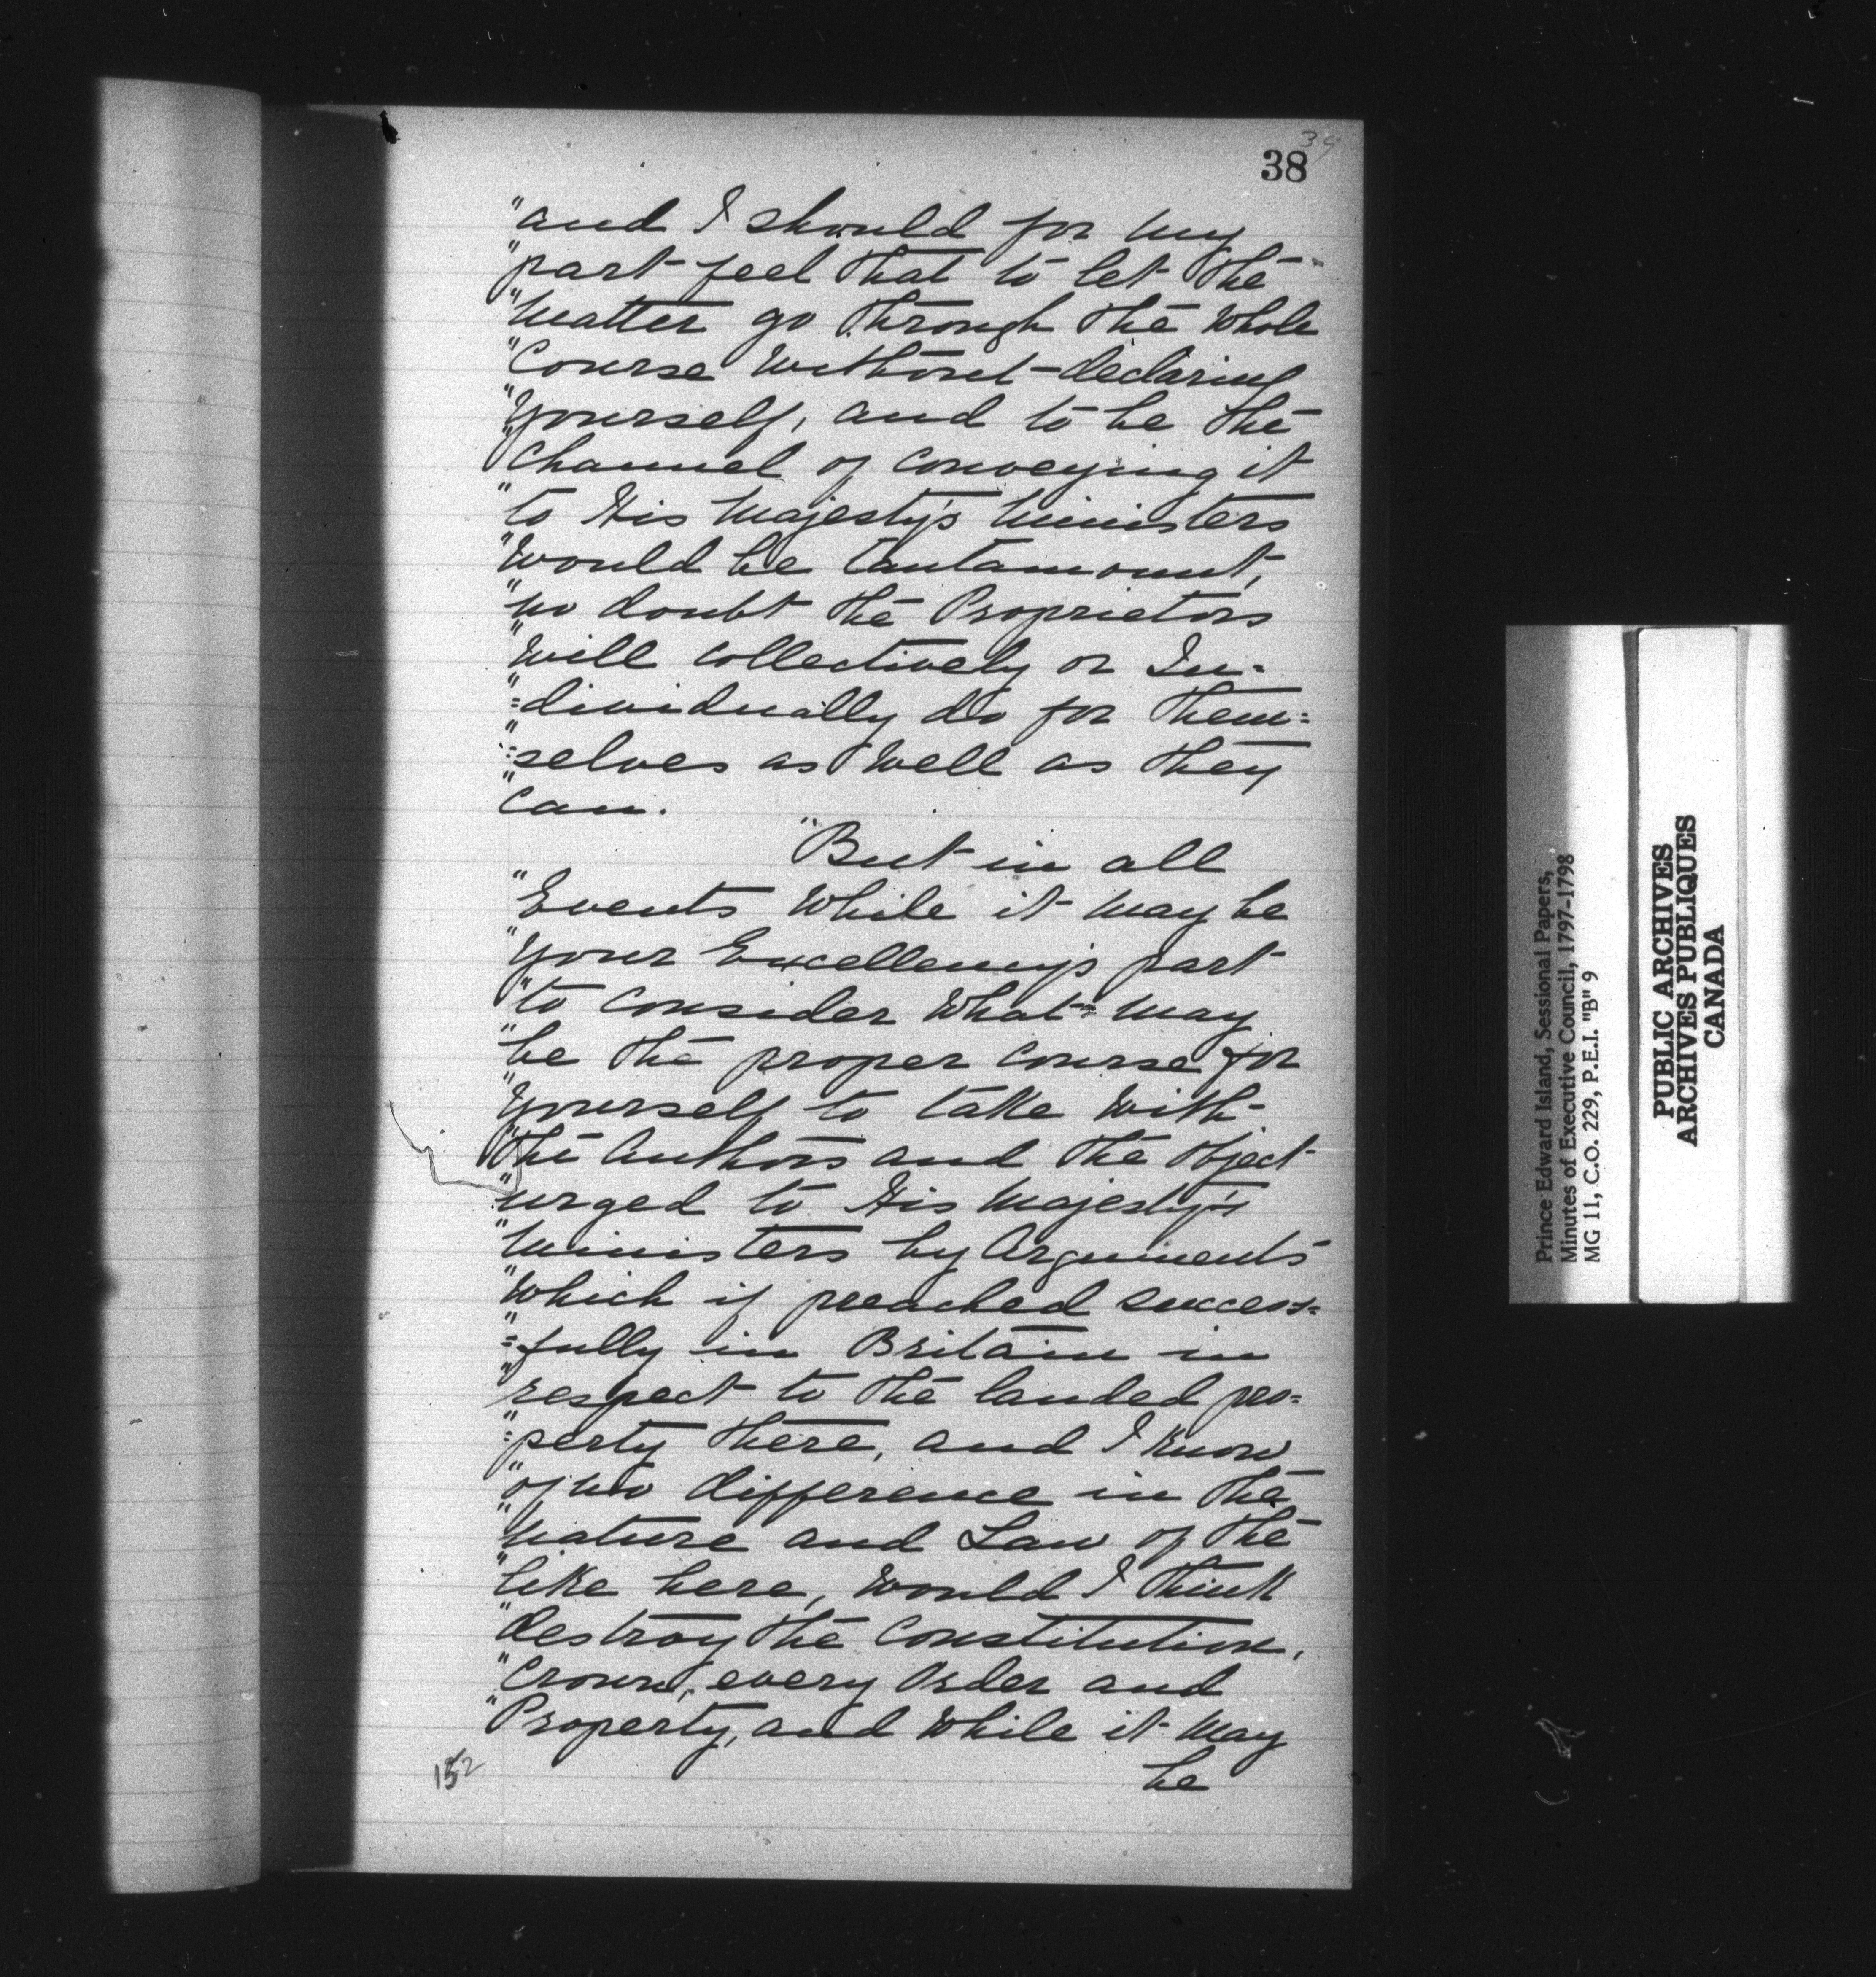 39
38
"and I should for my
"part feel that to let the
"matter go through the whole
"Course without declaring
"yourself, and to be the
"Channel of conveying it
"to His Majesty's Ministers
"would be tantamount,
"no doubt the Proprietors
"will collectively or In=
"=dividually do for them=
"=selves as well as they
"can.
"But in all
"Events while it may be
"your Excellency's part
"to consider what may
"be the proper course for
"yourself to take with
"the Authors and the object
"urged to His Majesty's
"Ministers by Arguments
"which if preached success=
"=fully in Britain in
"respect to the landed pro=
"=perty there, and I know
"of no difference in the
"nature and Law of the
"like here, would I think
"destroy the Constitution,
"Crown, every Order and
"Property, and while it may
be
152
Prince Edward Island, Sessional Papers,
Minutes of Executive Council, 1797-1798
MG 11, C.O. 229, P.E.I. "B" 9
PUBLIC ARCHIVES
ARCHIVES PUBLIQUES
CANADA